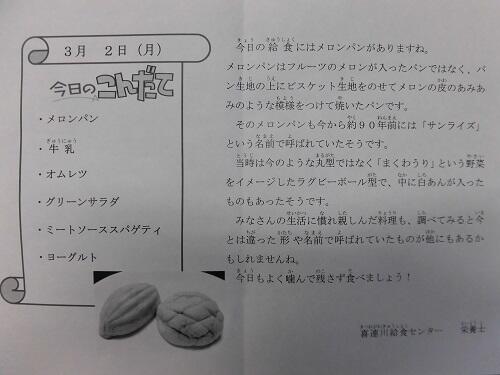 3月 2日(月)
今日のこんだて
・メロンパン
・牛乳
・オムレツ
・グリーンサラダ
・ミートソーススパゲティ
・ヨーグルト
今日の給食にはメロンパンがありますね。
メロンパンはフルーツのメロンが入ったパンではなく、パ
ン生地の上にビスケット生地をのせてメロンの皮のあみあ
みのような模様をつけて焼いたパンです。
そのメロンパンも今から約90年前には「サンライズ」
という名前で呼ばれていたそうです。
当時は今のような丸型ではなく「まくわうり」という野菜
をイメージしたラグビーボール型で、中に白あんが入った
ものもあったそうです。
みなさんの生活に慣れ親しんだ料理も、調べてみると今
とは違った形や名前で呼ばれていたものが他にもあるか
もしれませんね。
今日もよく噛んで残さず食べましょう!
喜連川給食センター 栄養士